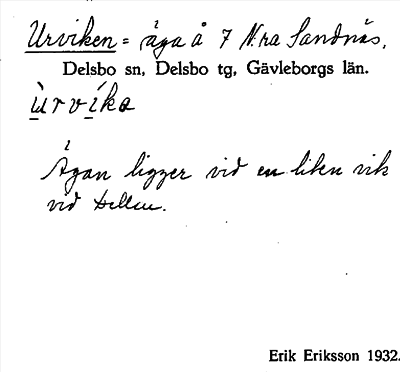 Urviken = äga å 7 N:ra Sandnäs,
Delsbo sn, Delsbo tg, Gävleborgs län.
ùrvíka
Ägan ligger vid en liten vik
vid Dellen.
Erik Eriksson 1932.